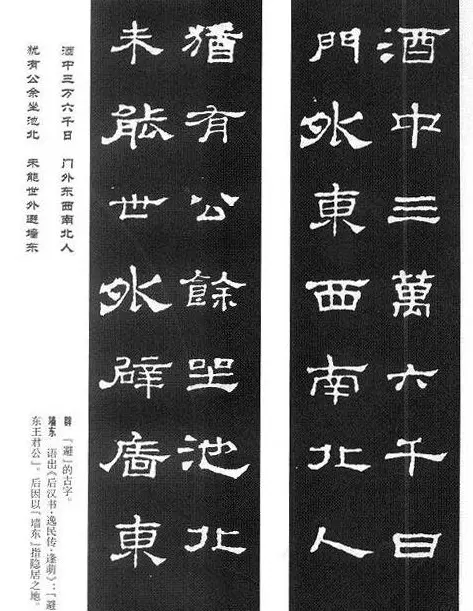 酒中三萬六千日
門外東西南北人
猶有公餘坐池北
未能世外辟廧東
酒中三万六千日 门外东西南北人
犹有公余坐池北 未能世外避墙东
辟 「避」的古字。
墙东 语出《后汉书·逸民传·逢萌》：「避
东王君公」。后因以「墙东」指隐居之地。